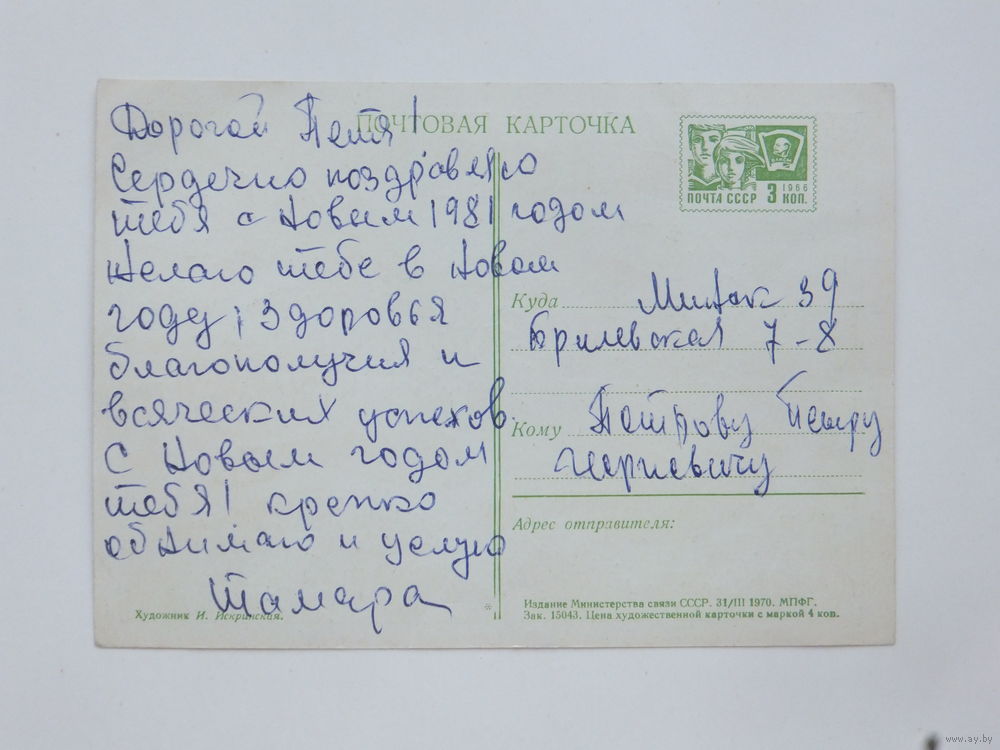 ПОЧТОВАЯ КАРТОЧКА
Дорогой Петя!
Сердечно поздравляю
тебя с Новым 1981 годом
Желаю тебе в Новом
году, здоровья
благополучия и
всяческих успехов.
С Новым годом
тебя! крепко
обнимаю и целую
Тамара
Художник И. Искринская.
1966
ПОЧТА СССР 3 КОП.
Куда Минск 39
Брилевская 7-8
Кому Петрову Петру
Адрес отправителя:
Издание Министерства связи СССР. 31/III 1970. МПФГ.
Зак. 15043. Цена художественной карточки с маркой 4 коп.
www.ay.by